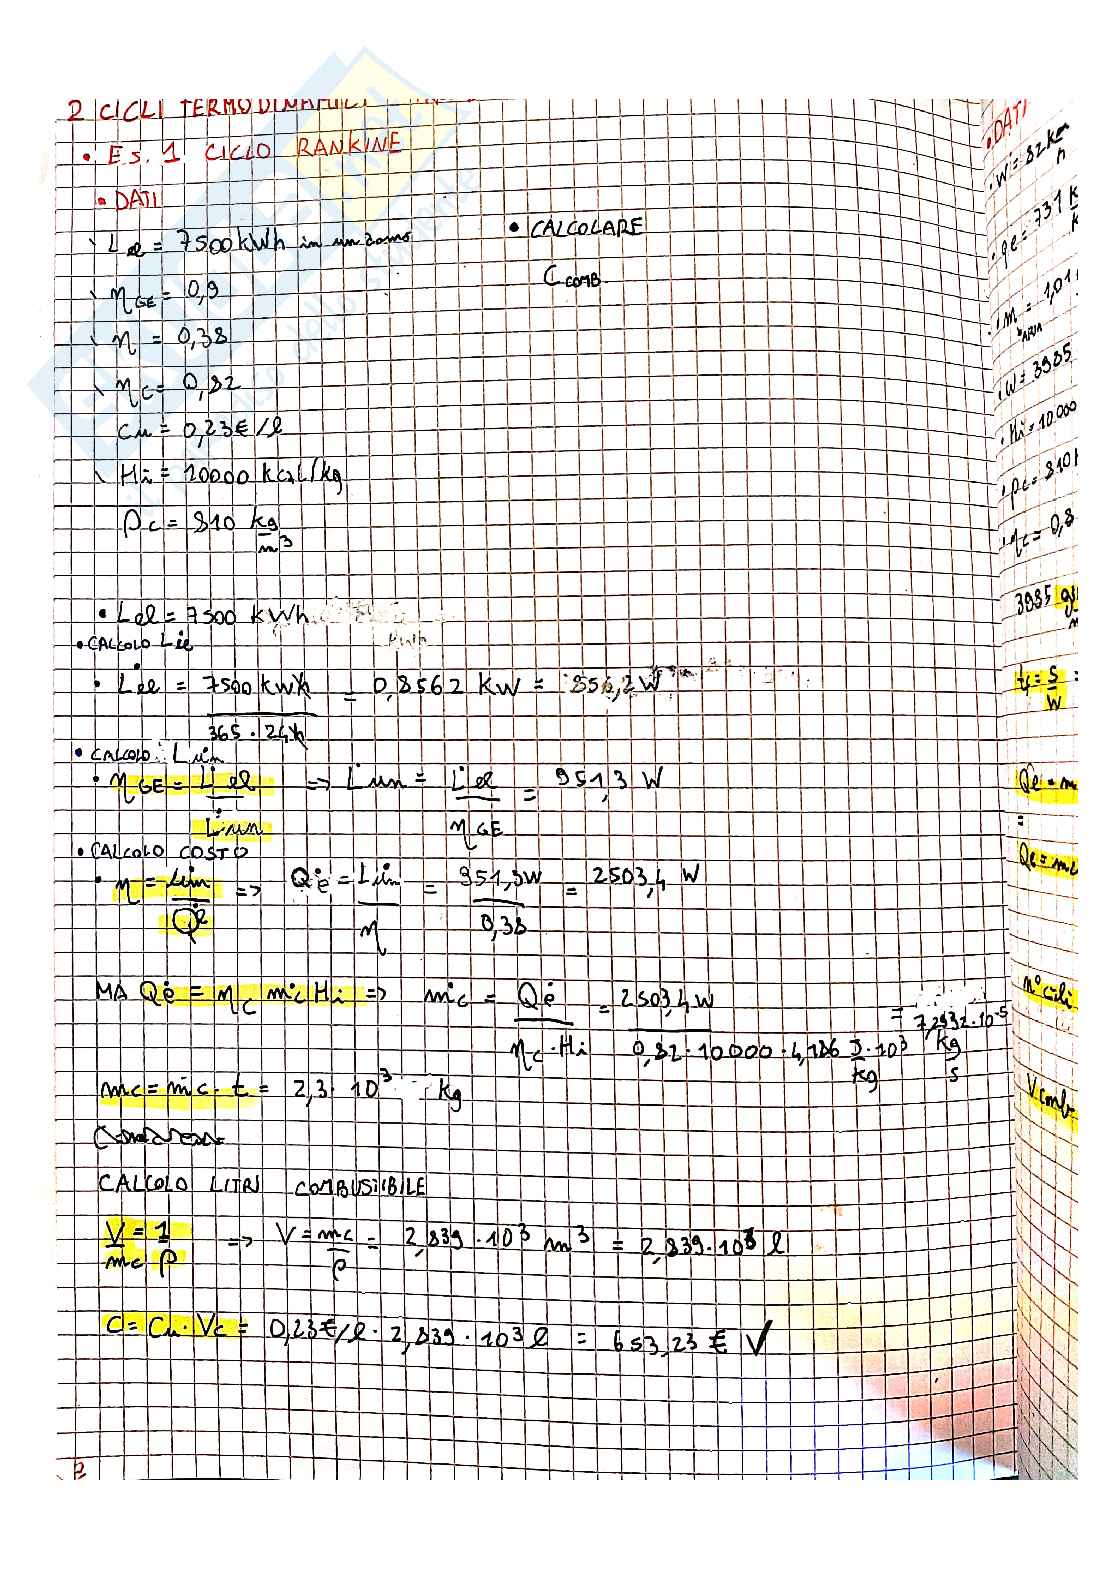 2 CICLI TERMODINAMICI
• Es. 1 CICLO RANKINE
• DATI
Lel = 7500 kWh in un anno
ηGE = 0,9
η = 0,38
ηc = 0,82
cu = 0,23 €/l
Hi = 10000 kcal/kg
ρc = 810 kg/m³
• CALCOLARE
CCOMB
• Lel = 7500 kWh
• CALCOLO L̇el
• L̇el = 7500 kWh / 365 · 24h = 0,8562 KW = 856,2 W
• CALCOLO: L̇un
• ηGE = L̇el / L̇un => L̇un = L̇el / ηGE = 951,3 W
• CALCOLO COSTO
• η = L̇un / Q̇e => Q̇e = L̇un / η = 951,3W / 0,38 = 2503,4 W
MA Q̇e = ηc ṁc Hi => ṁc = Q̇e / ηc · Hi = 2503,4 W / 0,82 · 10000 · 4,186 J/kg · 10³ = 7,2932 · 10⁻⁵ kg/s
mc = ṁc · t = 2,3 · 10³ kg
CALCOLO LITRI COMBUSTIBILE
V/mc = 1/ρ => V = mc/ρ = 2,839 · 10³ m³ = 2,839 · 10³ l
C = Cu · Vc = 0,23 €/l · 2,839 · 10³ l = 653,23 € V
2
• DATI
• W = 82 Km/h
• qe = 731
• ṁARIA = 1,01
• W = 3985
• Hi = 10.000
• ρc = 810
• ηc = 0,8
3985
τ = S/W =
Q̇e = m
=
Qe = mc
n° cicli
Vcomb